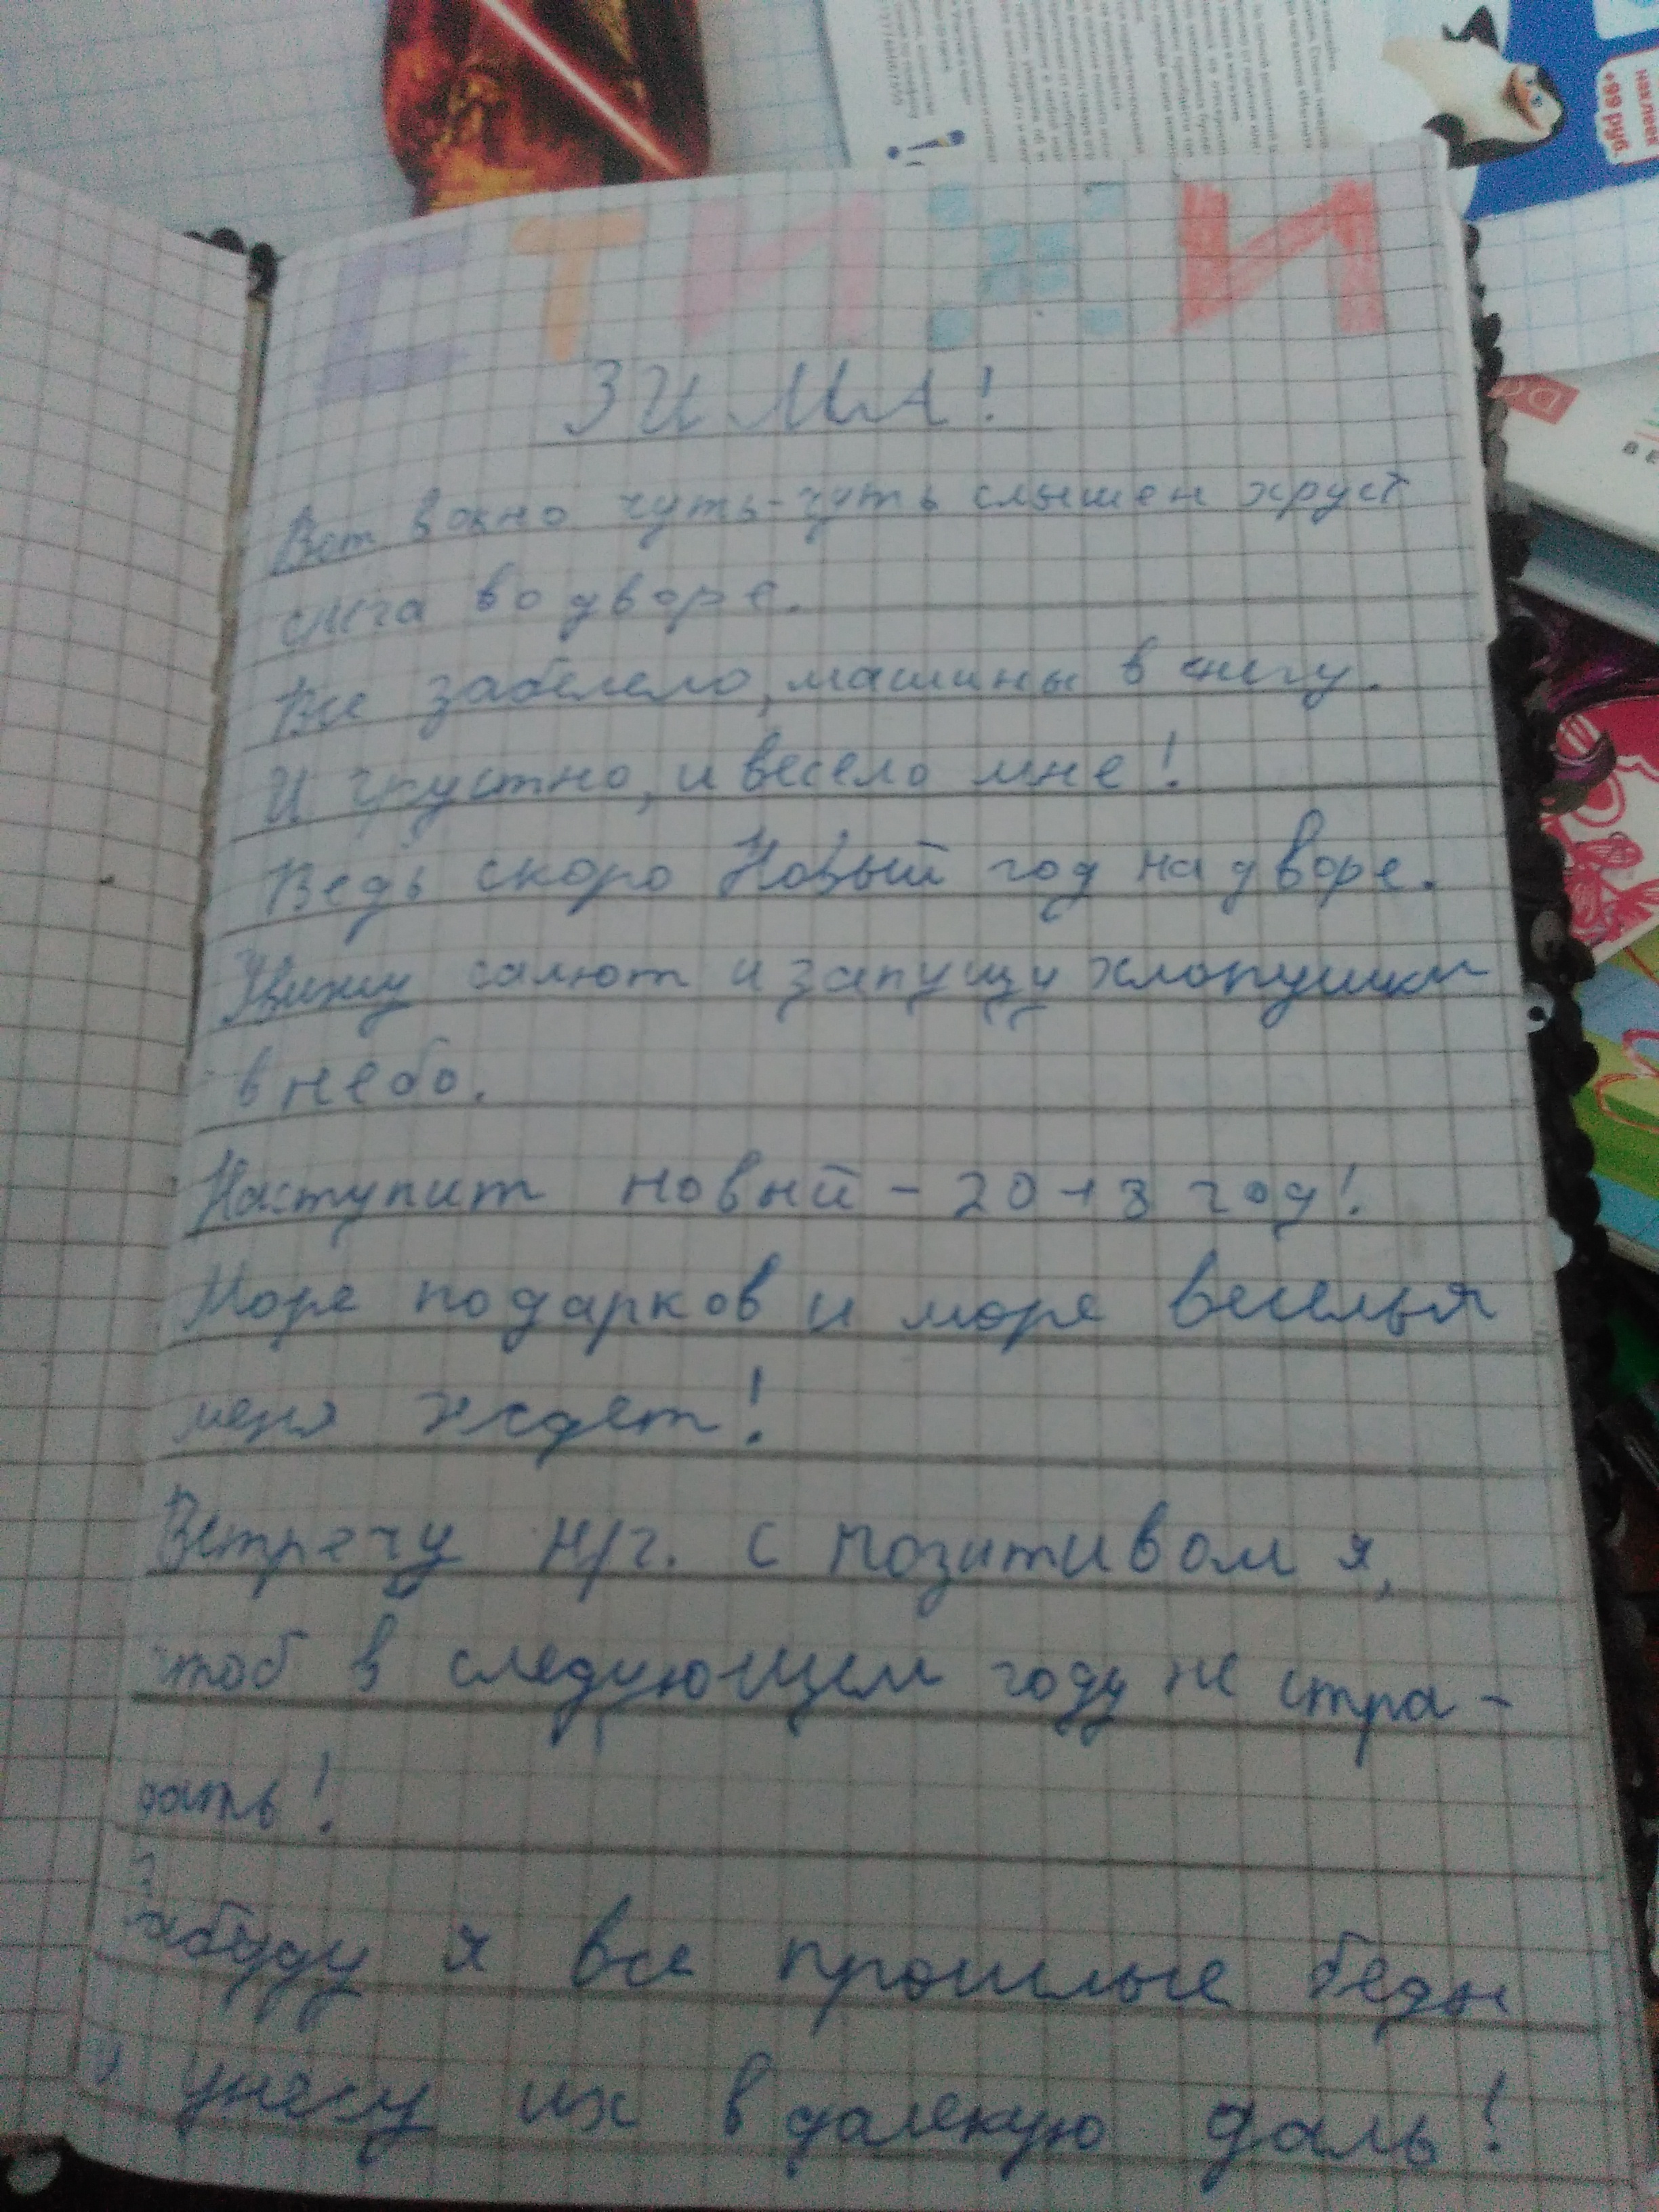 СТИХИ
ЗИМА!
Вот в окно чуть-чуть слышен хруст
снега во дворе.
Все забелело, машины в снегу.
И грустно, и весело мне!
Ведь скоро Новый год на дворе.
Увижу салют и запущу хлопушки
в небо.
Наступит новый - 2018 год!
Море подарков и море веселья
меня ждет!
Встречу н/г. с позитивом я,
чтоб в следующем году не стра-
дать!
Забуду я все прошлые беды
И унесу их в далекую даль!
наклеек
+99 руб.